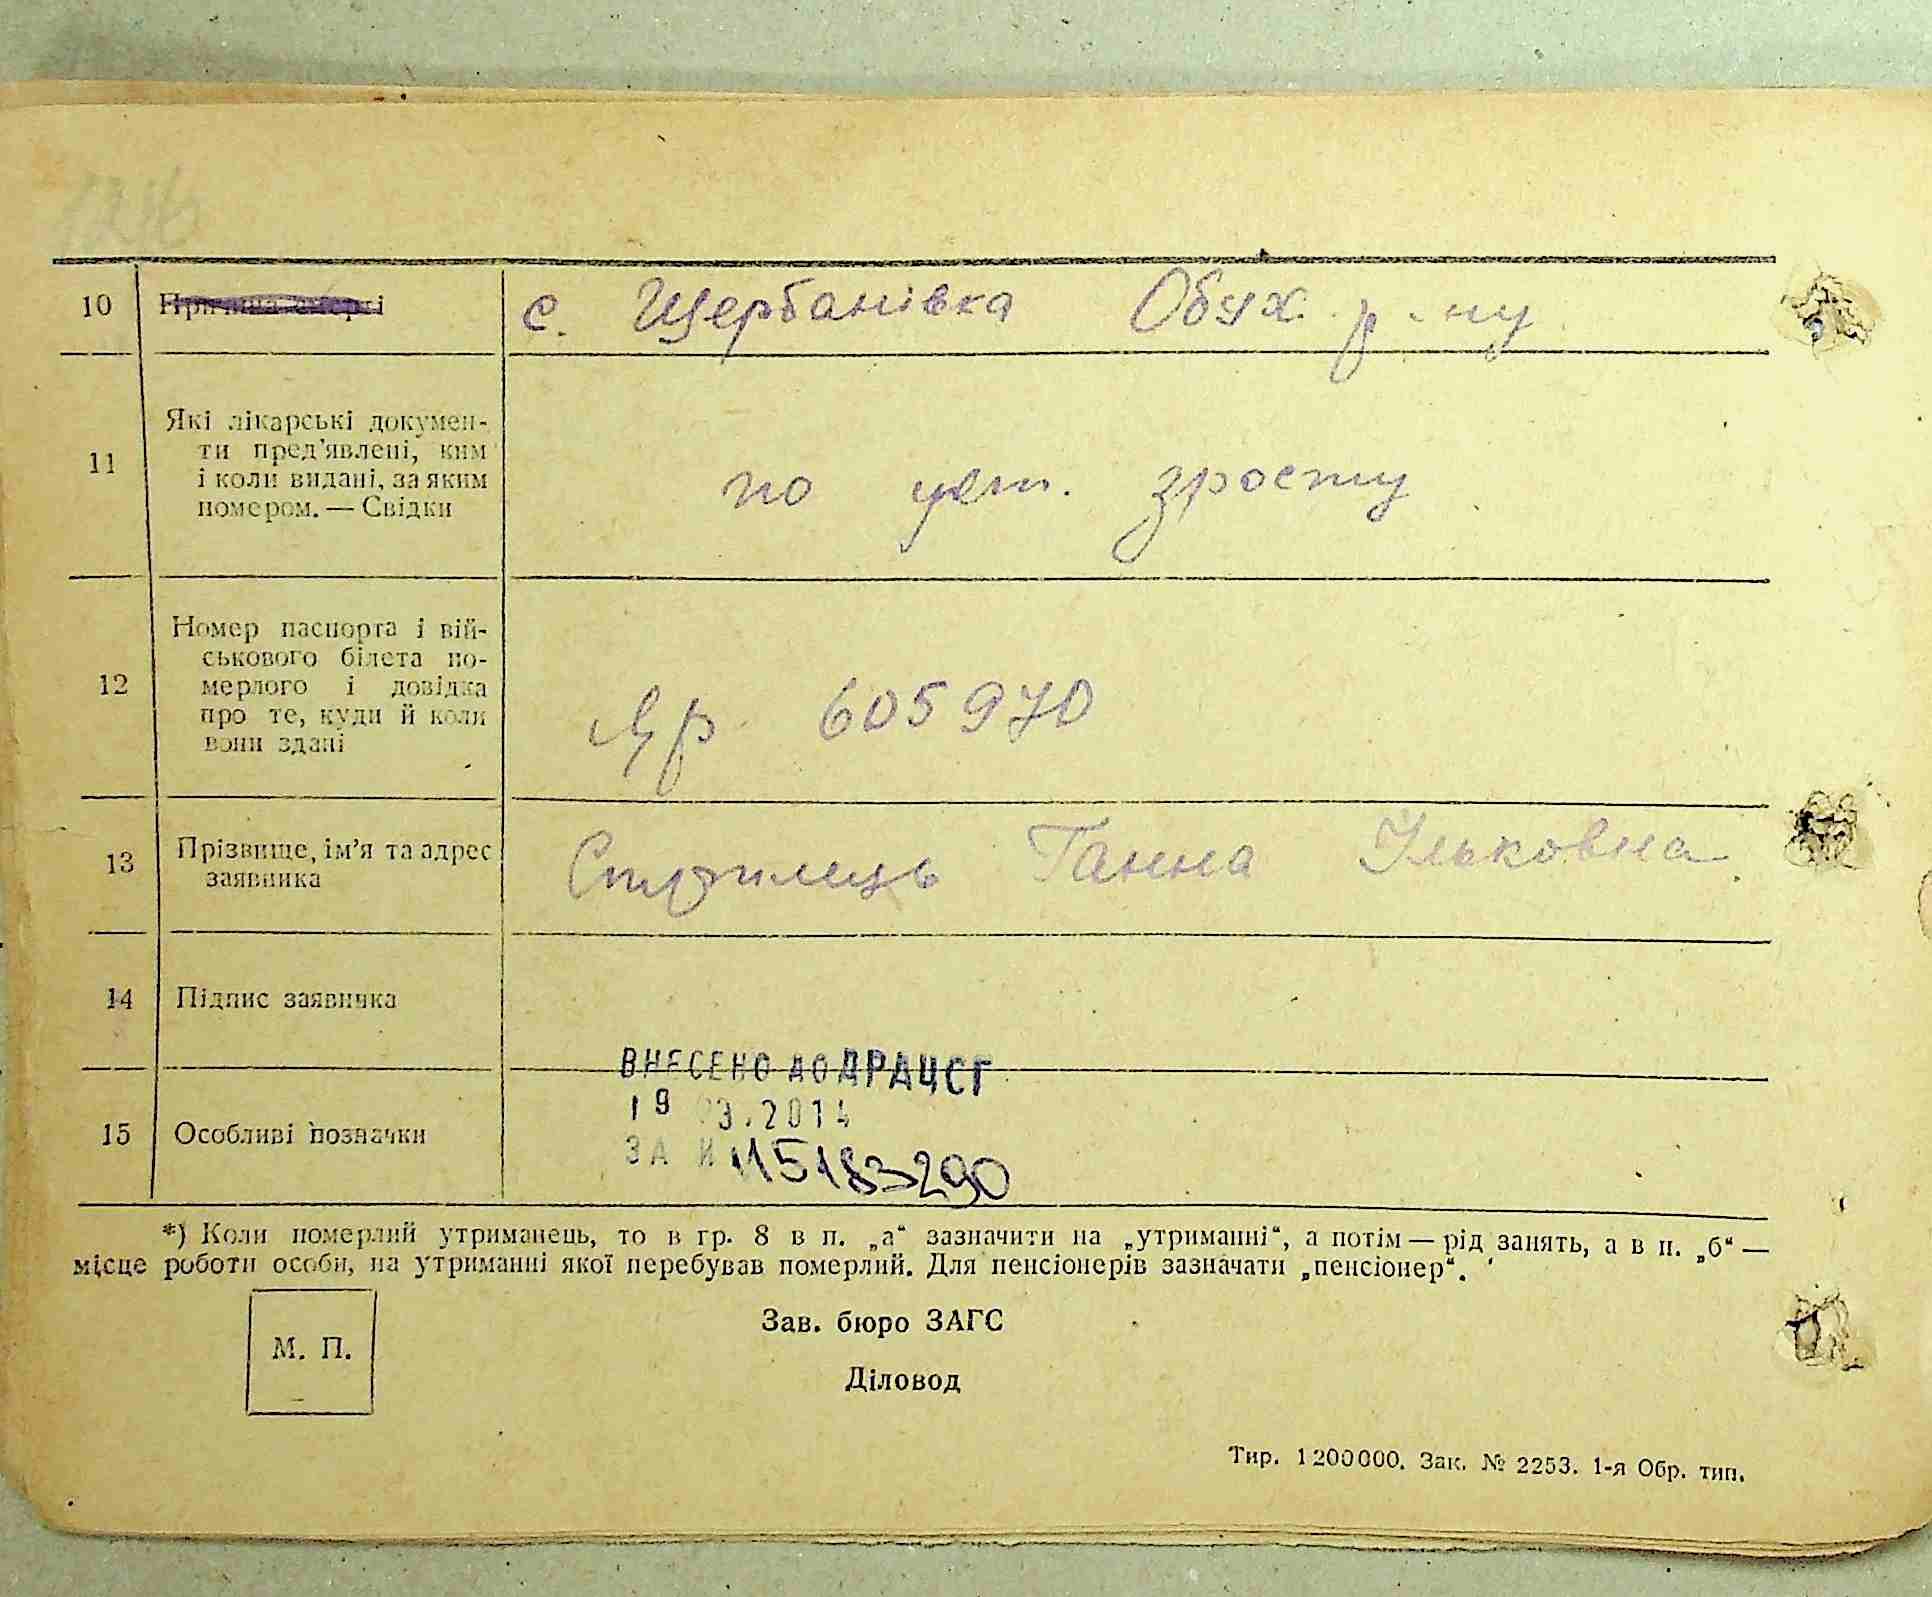 10 Причина смерті с. Щербанівка Обух. р-ну
11 Які лікарські докумен-
ти пред'явлені, ким
і коли видані, за яким
номером. — Свідки
по уст. зросту
12 Номер паспорта і вій-
ськового білета по-
мерлого і довідка
про те, куди й коли
вони здані
605970
13 Прізвище, ім'я та адрес
заявника
Ганна Ільковна
14 Підпис заявника
ВНЕСЕНО ДО ДРАЦСГ
19 03.2014
15 Особливі позначки
ЗА № 115183290
*) Коли померлий утриманець, то в гр. 8 в п. „а“ зазначити на „утриманні“, а потім — рід занять, а в п. „б“ —
місце роботи особи, на утриманні якої перебував померлий. Для пенсіонерів зазначати „пенсіонер“.
М. П.
Зав. бюро ЗАГС
Діловод
Тир. 1200000. Зак. № 2253. 1-я Обр. тип.